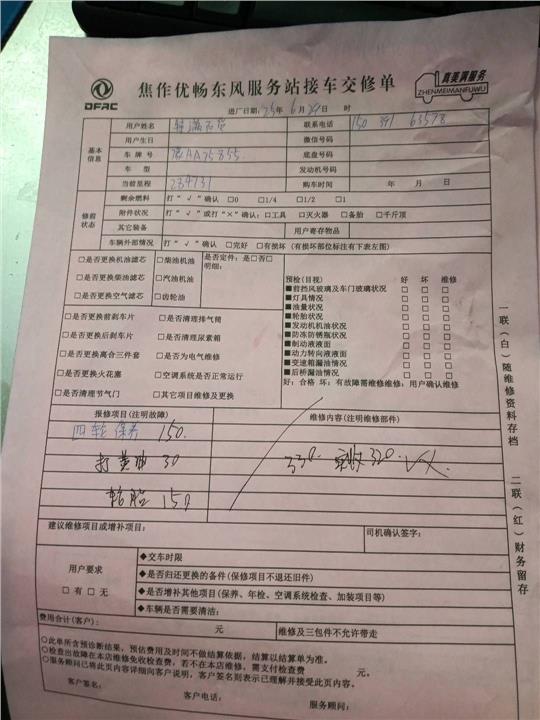 DFAC
焦作优畅东风服务站接车交修单
真美满服务
ZHENMEIMANFUWU
进厂日期：25年6月29日 时
基本信息
用户姓名 联系电话 150 391 63578
用户生日 微信号码
车牌号 豫AA75855 底盘号码
车型 发动机号码
当前里程 284731 购车时间 年 月 日
修前状态
剩余燃料 打“√”确认 □0 □1/4 □1/2 □1
附件状况 打“√”或打“×”确认：□工具 □灭火器 □备胎 □千斤顶
其它装备 用户寄存物品
车辆外部情况 打“√”确认 □完好 □有损坏（有损坏部位标注有下表左图）
□是否更换机油滤芯 □柴油机油 是否定件：是□否□
□是否更换柴油滤芯 □汽油机油 明细：
□是否更换空气滤芯 □齿轮油
预检(目视) 好 坏 维修
■前挡风玻璃及车门玻璃状况 □ □ □
■灯具情况 □ □ □
■油量状况 □ □ □
■轮胎状况 □ □ □
■发动机机油状况 □ □ □
■防冻防锈瓶状况 □ □ □
■制动液液面 □ □ □
■动力转向液液面 □ □ □
■变速箱漏油情况 □ □ □
■后桥漏油情况 □ □ □
好：合格 坏：有故障需维修维修：用户确认维修
□是否更换前刹车片 □是否清理排气筒
□是否更换后刹车片 □是否清理尿素箱
□是否更换离合三件套 □是否为电气维修
□是否更换火花塞 □空调系统是否正常运行
□是否清理节气门 □其它项目维修及更换
报修项目(注明故障) 维修内容(注明维修部件)
四轮保养 150.
打黄油 30 330. 实收320.
轮胎 150
建议维修项目或增补项目： 司机确认签字：
用户要求
□有 □无
◆交车时限
◆是否归还更换的备件(保修项目不退还旧件)
◆是否增补其他项目(保养、年检、空调系统检查、加装项目等)
◆车辆是否需要清洁：
费用合计(客户)： 元 维修及三包件不允许带走
○此单所含预诊断结果，预估费用及时间不做结算依据，结算以结算单为准。
○检查出故障在本店维修免收检查费，若不在本店维修，需支付检查费 元。
○服务顾问已将此页内容详细向客户说明，客户签名则表示已理解并接受此页内容。
客户签名： 客户电话： 服务顾问：
一联（白）随维修资料存档
二联（红）财务留存